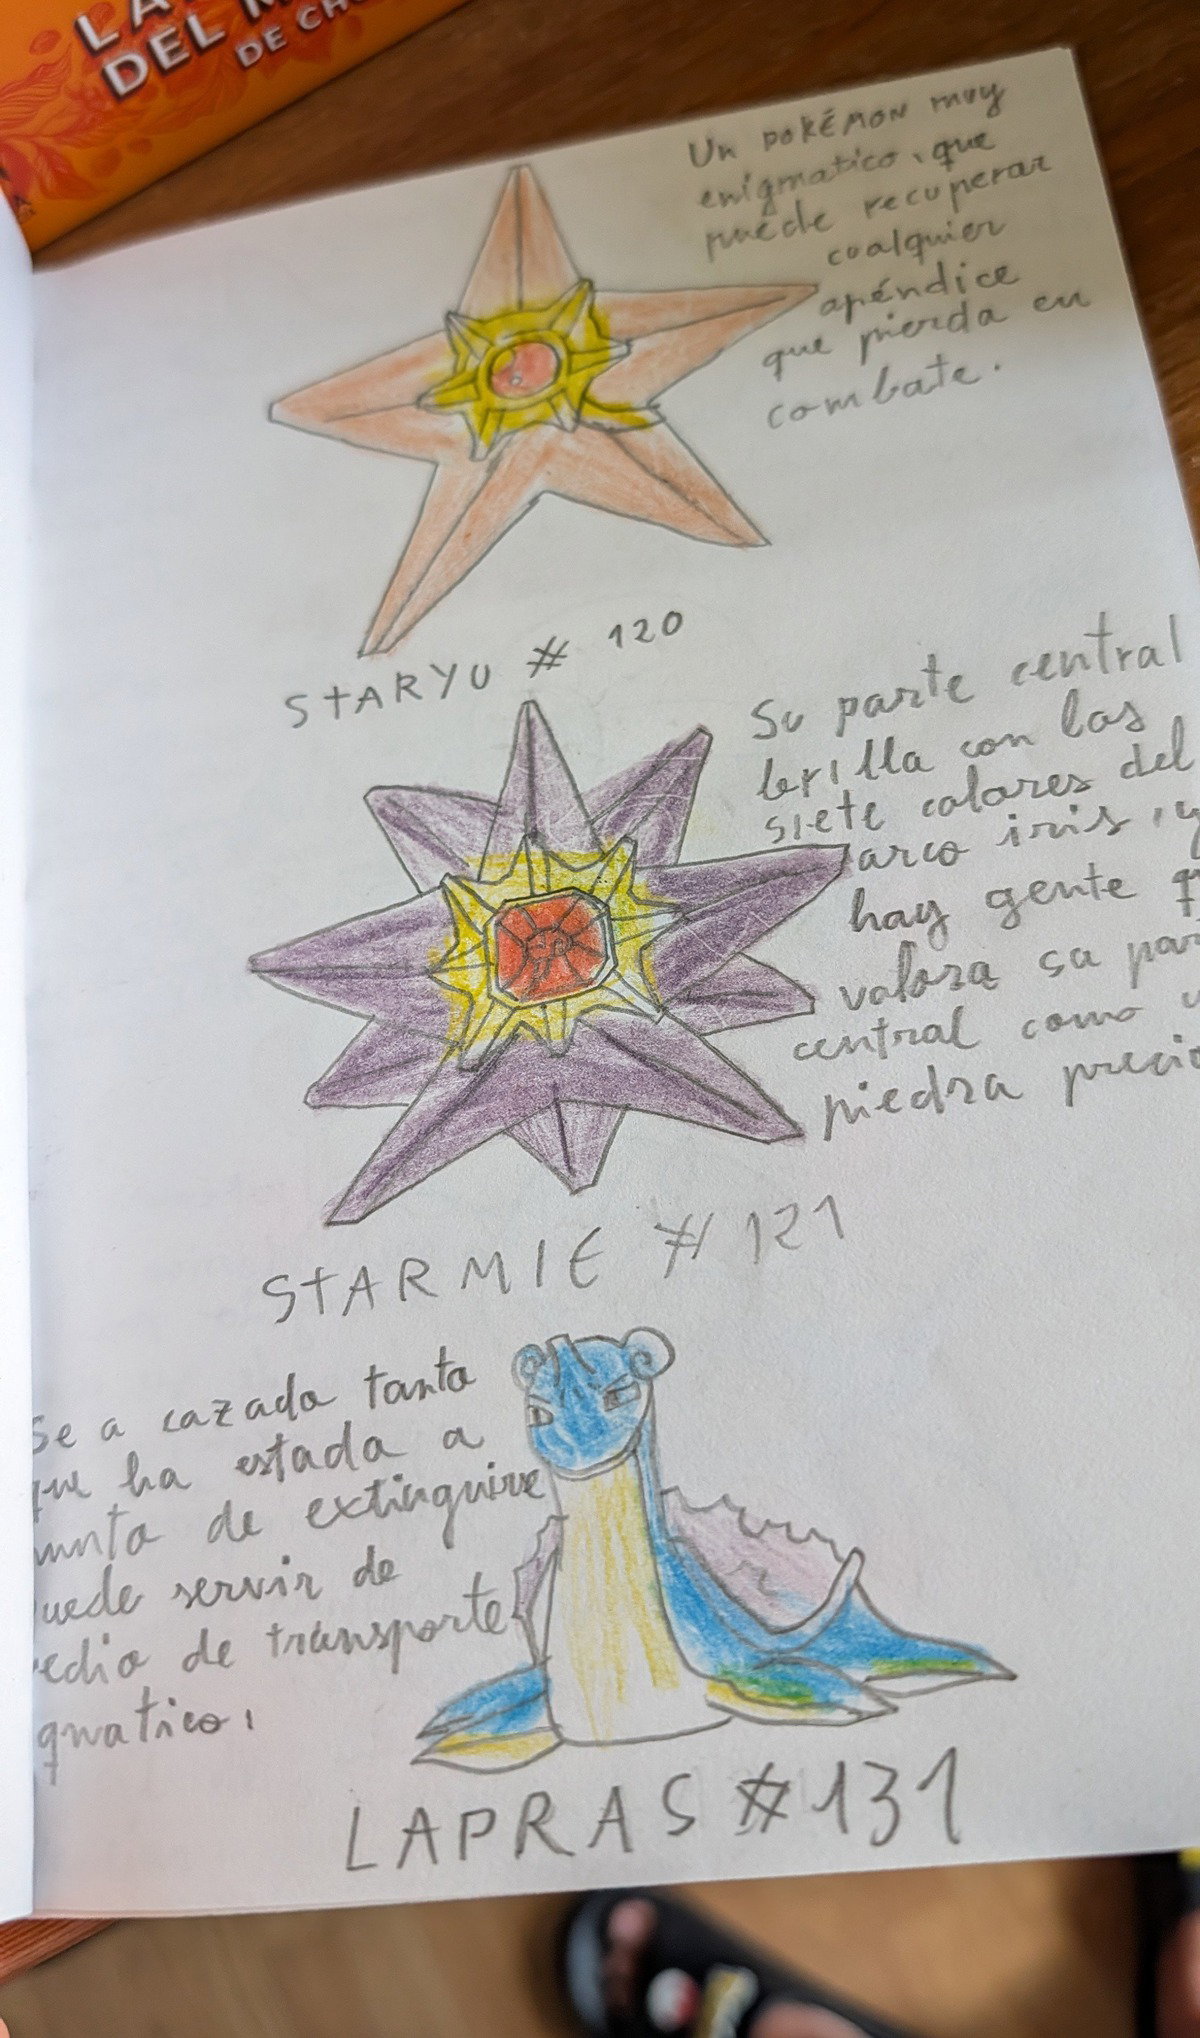 DEL
DE
Un POKÉMON muy
enigmatico, que
puede recuperar
coalquier
apéndice
que pierda en
combate.
STARYU # 120
Su parte central
brilla con los
siete colores del
arco iris, y
hay gente
valora su
central como
piedra
STARMIE # 121
Se a cazado tanto
que ha estado a
punto de extinguirse
servir de
de transporte
LAPRAS # 131